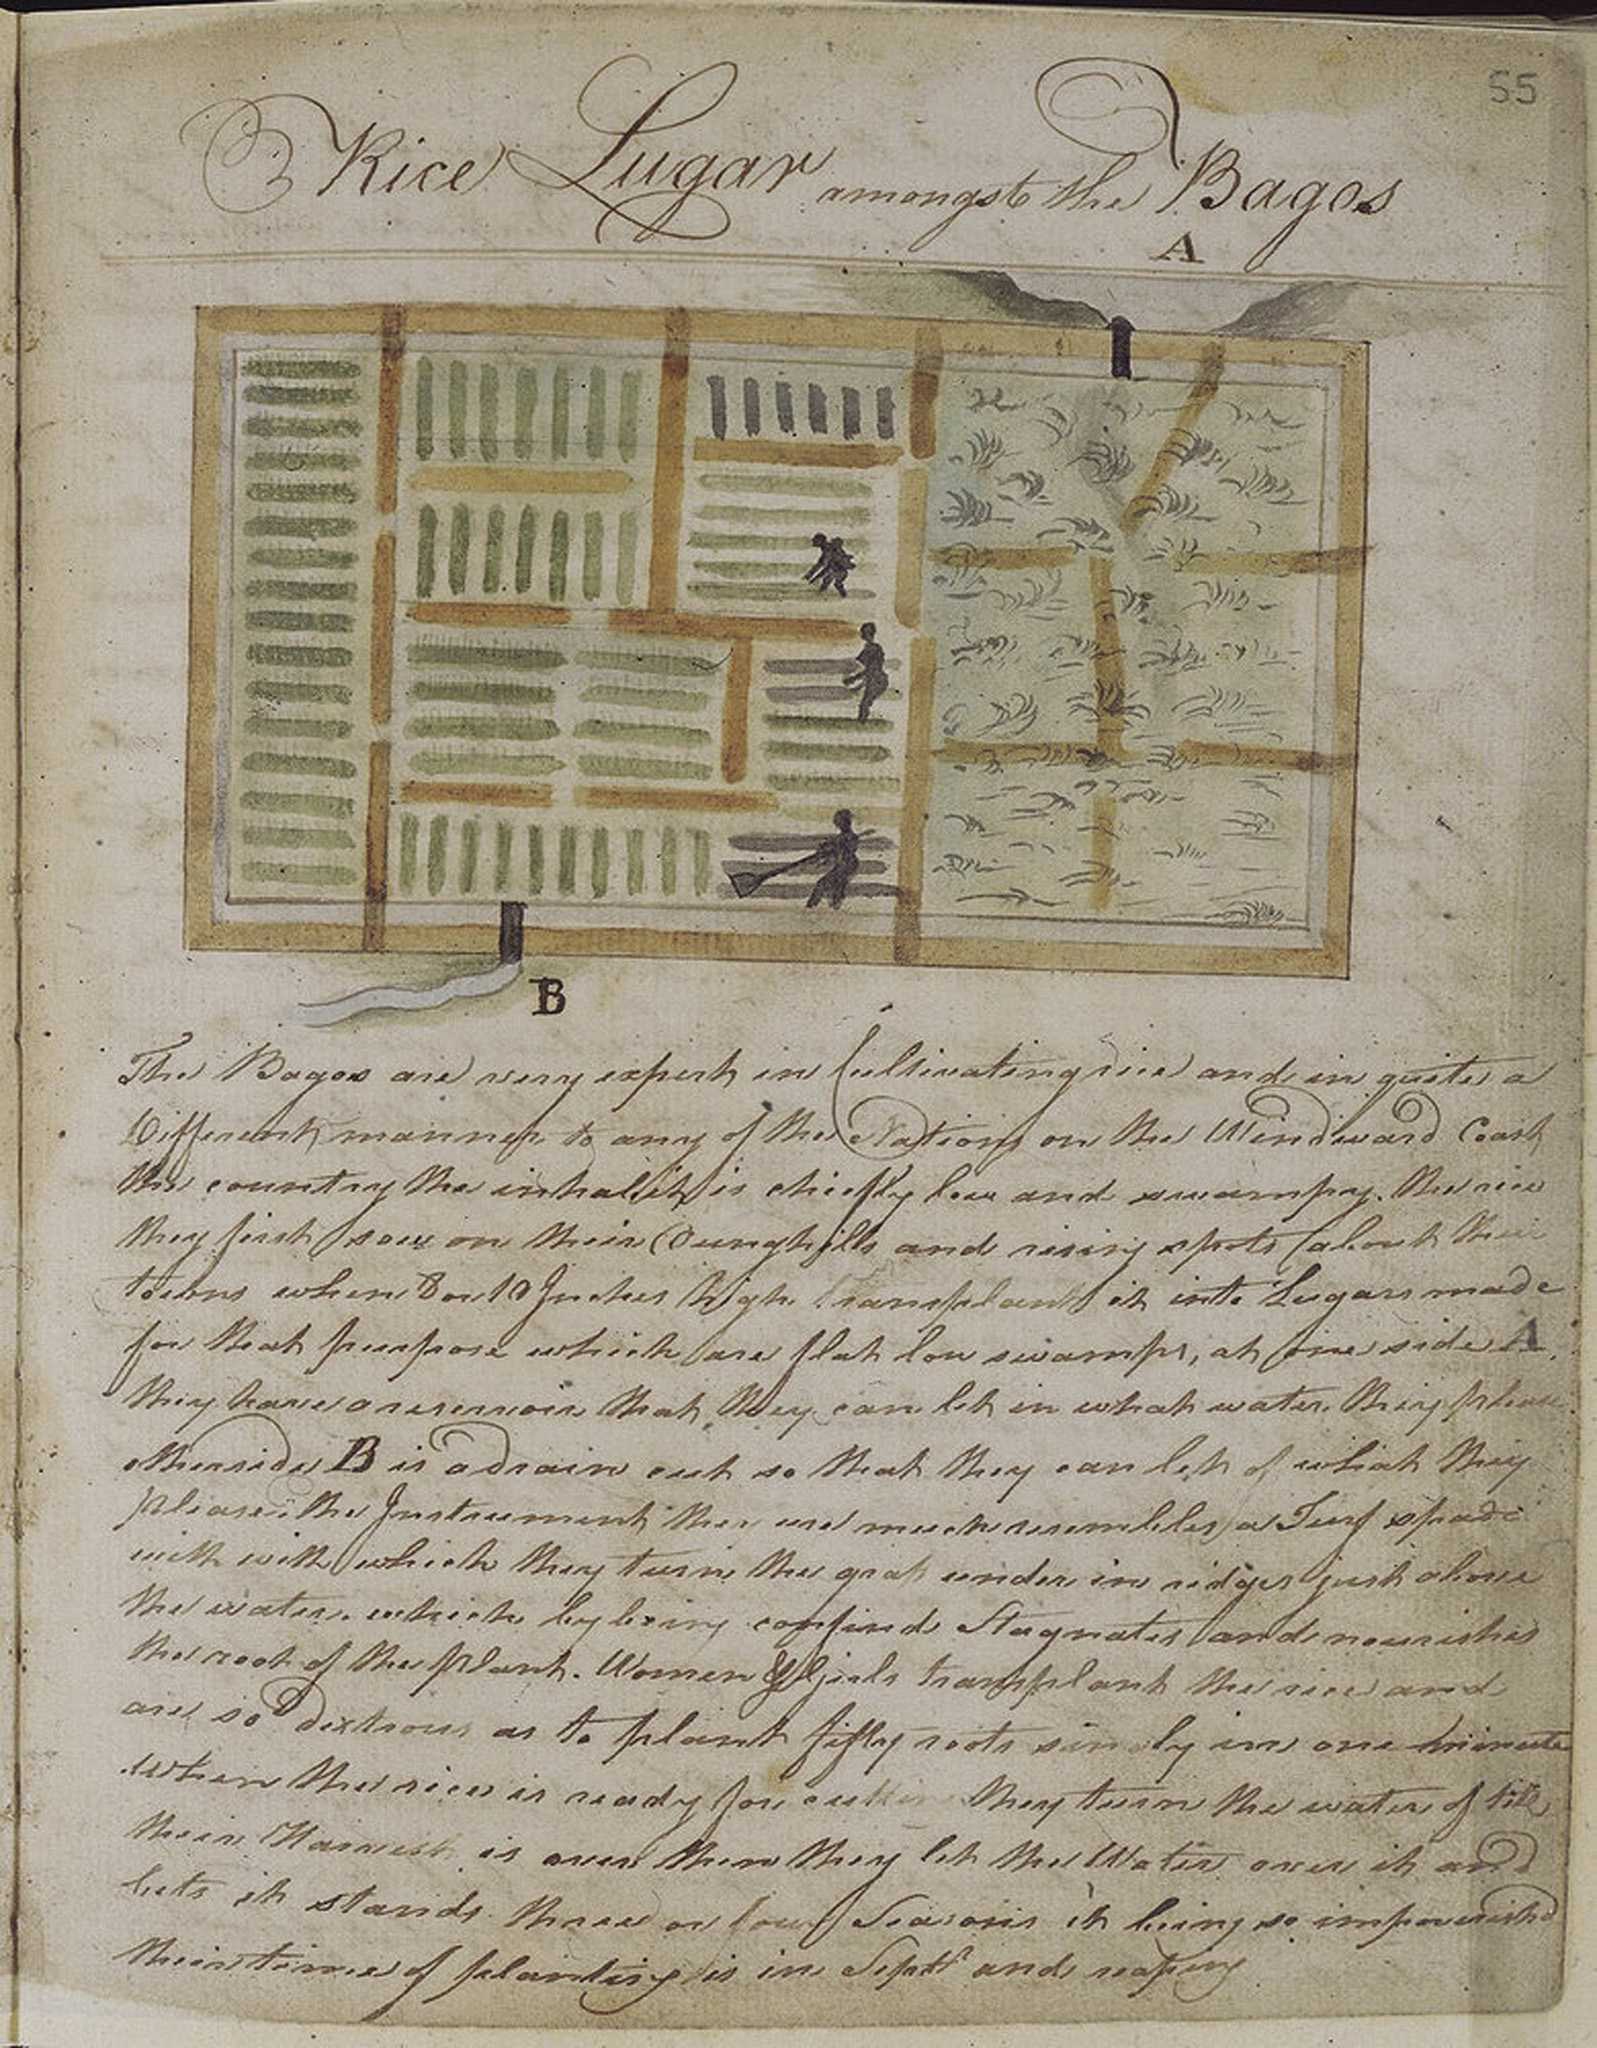 55
Rice Lugar amongst the Bagos
A
B
The Bagos are very expert in Cultivating rice and in quite a
Different manner to any of the Nations on the Windward Coast
the country the inhabit is chiefly low and swampy. the rice
they first sow on their Dunghills and rising spots about their
towns when 8 or 10 Inches high transplant it into Lugars made
for that purpose which are flat low swamps, at one side A
they have a reservoir that they can let in what water they please
otherside B is a drain cut so that they can let of what they
please. the Instrument they use much resembles a Turf spade
with with which they turn the grass under in ridges just above
the water. which by being confined Stagnates and nourishes
the root of the plant. Women & Girls transplant the rice and
are so Dextrous as to plant fifty roots singly in one minute
when the rice is ready for cutting they turn the water of till
their Harvest is over then they let the Water over it and
lets it stands three or four Seasons it being so impoverished
their time of planting is in Septr and reaping